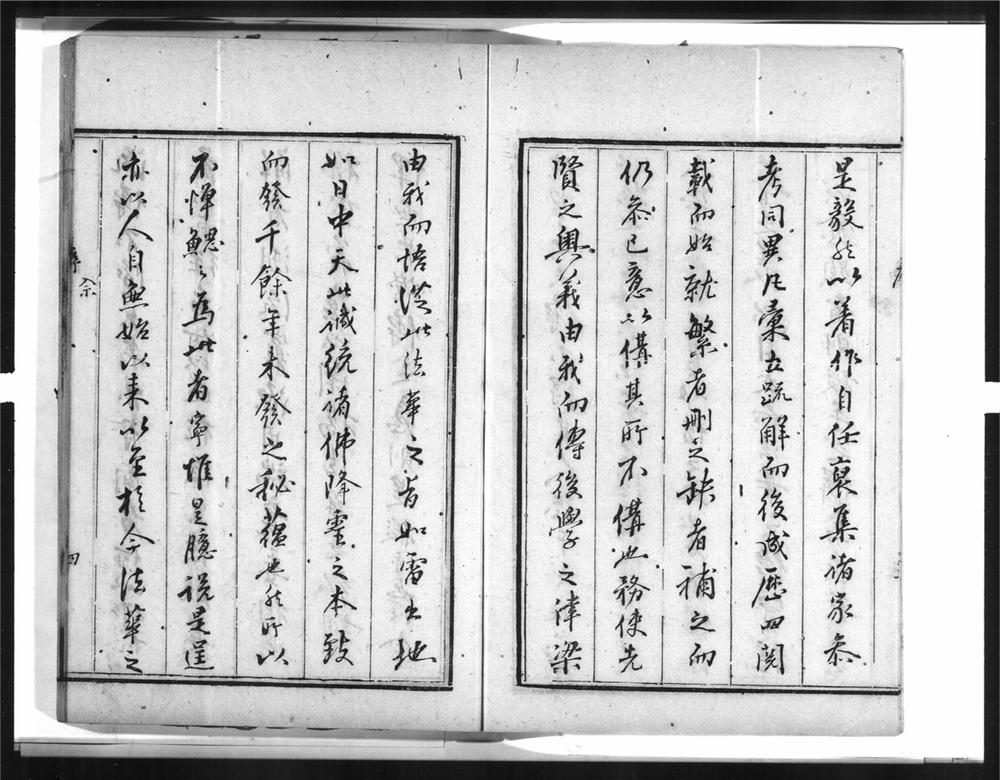 是毅然以著作自任裒集諸家叅
考同異凡彙五疏解而後成歷四閱
載而始就繁者刪之缺者補之而
仍叅已意以備其所不備也務使先
賢之奧義由我而傳後學之津梁
由我而悟從此法華之旨如雷出地
如日中天此誠統諸佛降靈之本致
而發千餘年未發之秘蘊也然所以
不憚鰓〻為此者寧惟是臆説是逞
亦以人自無始以来以至於今法華之
序
四